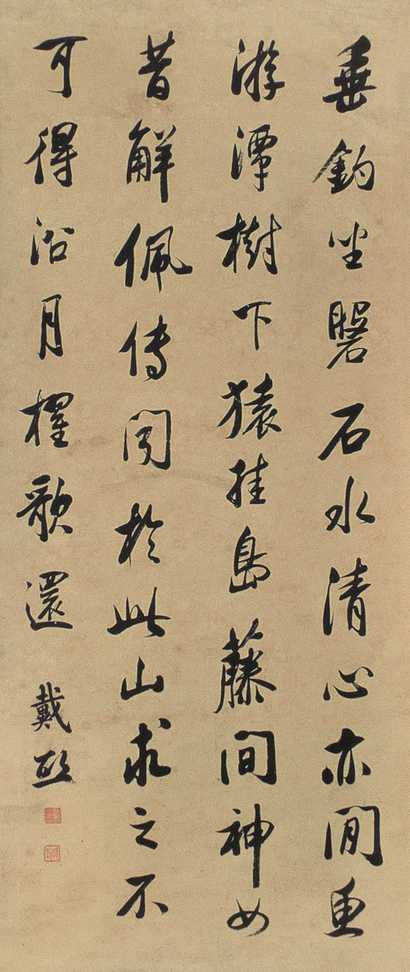 垂釣坐磐石水清心亦閒魚
游潭樹下猿挂島藤間神女
昔解佩傳聞於此山求之不
可得沿月櫂歌還 戴熙